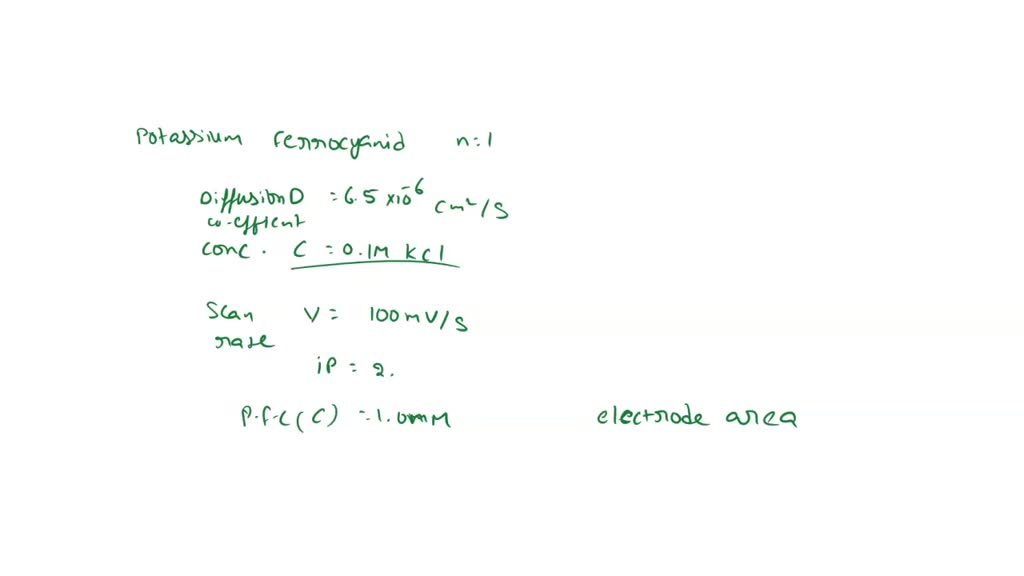 Potassium ferrocyanid n:1
Diffusion D = 6.5 x10^-6 cm²/s
co-efficient
conc. C = 0.1M kcl
Scan V = 100mV/s
rate
ip = 2.
P.f.c(C) = 1.0mM electrode area